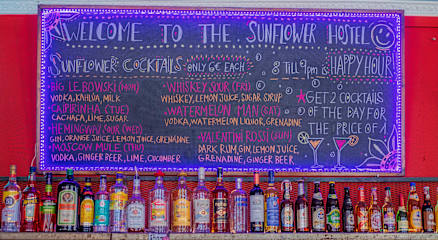 WELCOME TO THE SUNFLOWER HOSTEL
SUNFLOWER COCKTAILS ONLY 6€ EACH
BIG LEBOWSKI (MON)
VODKA, KAHLÚA, MILK
CAIPIRINHA (TUE)
CACHAÇA, LIME, SUGAR
HEMINGWAY SOUR (WED)
GIN, ORANGE JUICE, LEMON JUICE, GRENADINE
MOSCOW MULE (THU)
VODKA, GINGER BEER, LIME, CUCUMBER
WHISKEY SOUR (FRI)
WHISKEY, LEMON JUICE, SUGAR SIRUP
WATERMELON MAN (SAT)
VODKA, WATERMELON LIQUOR, GRENADINE
VALENTIN ROSSI (SUN)
DARK RUM, GIN, LEMON JUICE,
GRENADINE, GINGER BEER
8 TILL 9PM IS HAPPY HOUR
GET 2 COCKTAILS
OF THE DAY FOR
THE PRICE OF 1